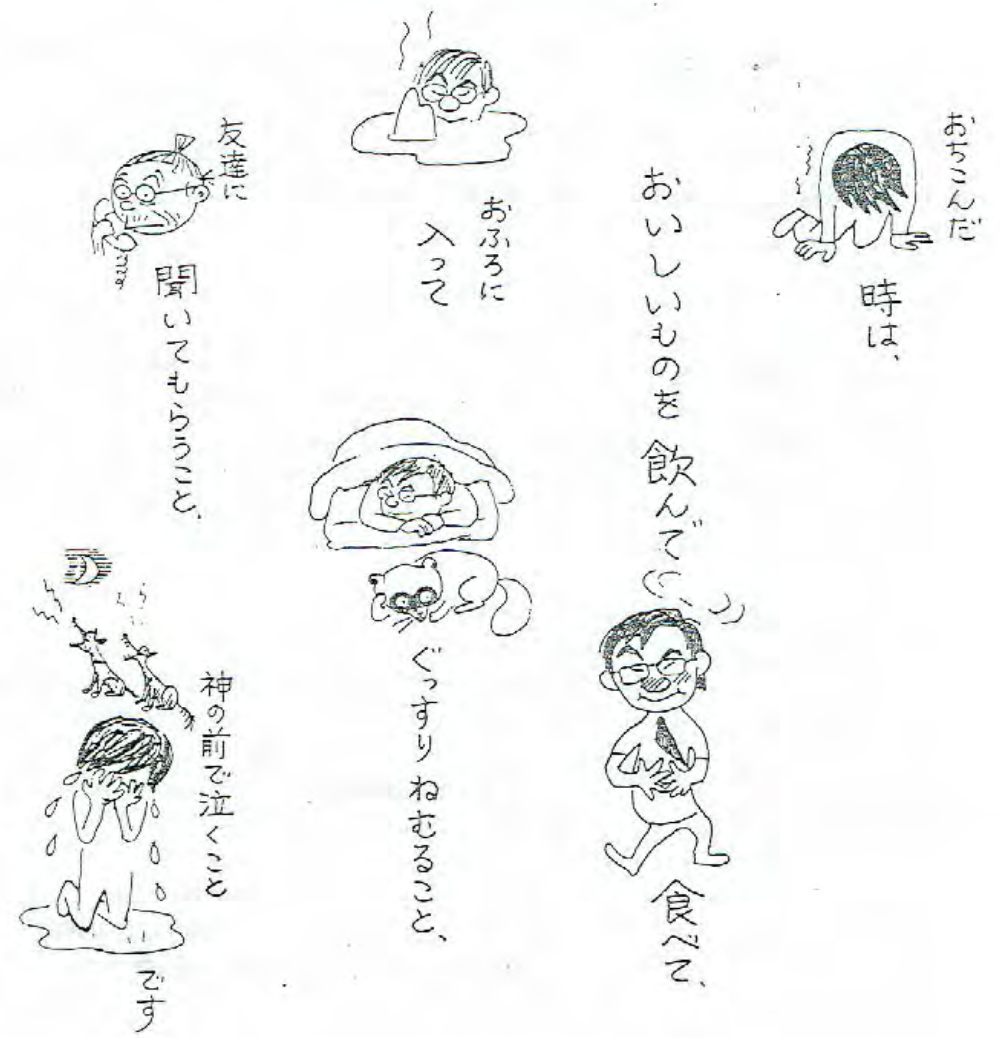 おちこんだ
時は、
おいしいものを飲んで
食べて、
おふろに
入って
ぐっすりねむること、
友達に
聞いてもらうこと、
神の前で泣くこと
です